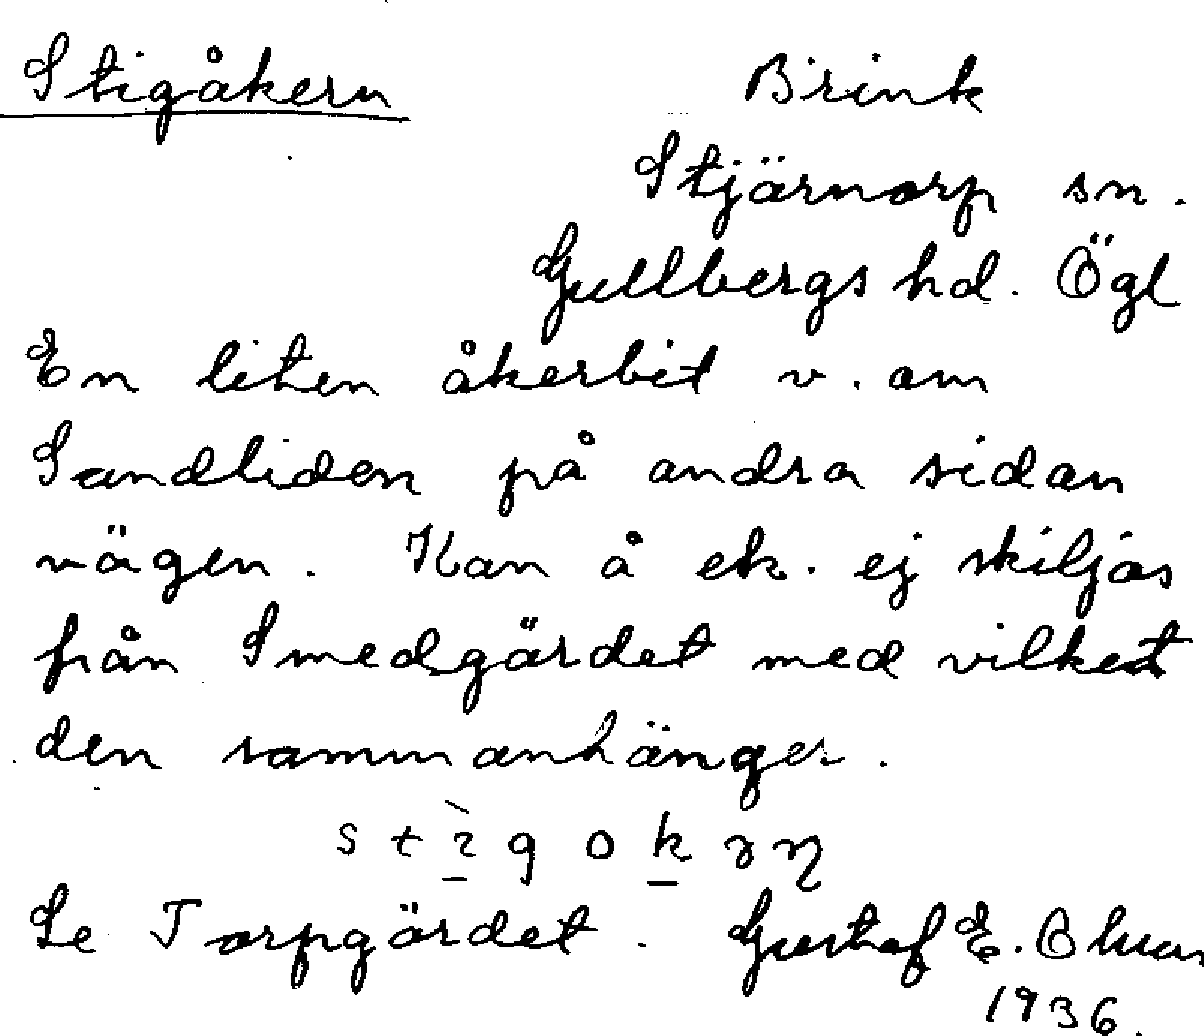 Stigåkern Brink
Stjärnorp sn.
Gullbergs hd. Ögl
En liten åkerbit v. om
Sandliden på andra sidan
vägen. Kan å ek. ej skiljas
från Smedgärdet med vilket
den sammanhänger.
Se Torpgärdet. Gustaf E.
1936.